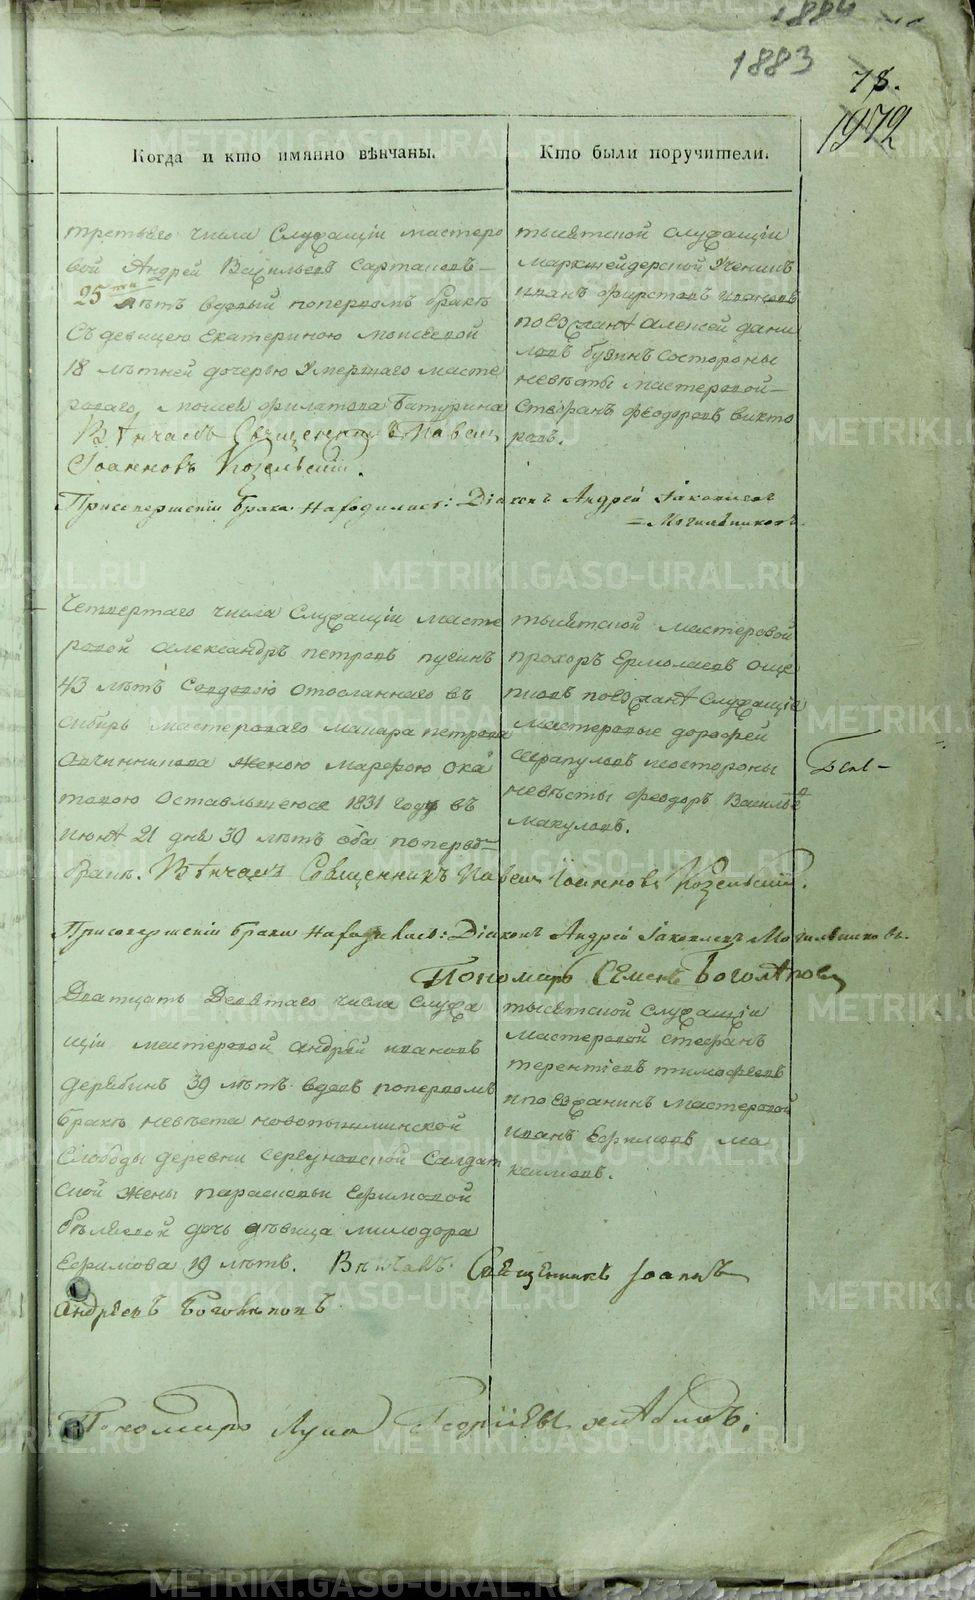 1884
1883
78.
1972
Когда и кто имянно вѣнчаны.
Кто были поручители.
третьяго числа Служащiи мастеро
вой Андрей Васильевъ Сартаковъ
25ти лѣтъ первымъ бракъ
Съ девицею Екатериною моисѣевой
18 лѣтней дочерью Умершаго масте
роваго, моисея филатова Батурина
Вѣнчалъ Священникъ Павелъ
Iоанновъ Козельскiй.
тысятской служащiи
Маркшейдерской Ученикъ
иванъ фирстовъ ивановъ
поезжанѣ алексей дани
ловъ бузинъ состороны
невѣсты мастеровой
Стефанъ феодоровъ викто
ровъ.
Присовершенiи брака находились: Дiаконъ Андрей Iаковлевъ
Могильниковъ.
Четвертаго числа Служащiи масте
ровой александръ петровъ пузинъ
43 лѣтъ Совдовою отосланнаго въ
сибирь мастероваго макара петрова
овчинникова женою марфою
оставльшеюся 1831 году въ
июнѣ 21 дня 30 лѣтъ оба поперво
бракѣ. Вѣнчалъ Священникъ Павелъ Iоанновъ Козельскiй.
тысятской мастеровой
прохоръ Ермолаевъ още
пковъ поезжанѣ Служащiе
мастеровые дорофей
серапуловъ состороны
невѣсты феодоръ Василье
макуловъ.
Присовершенiи брака находились: Дiаконъ Андрей Iаковлевъ Могильниковъ.
Пономарь Семенъ Боголѣповъ
Дватцать Девятаго числа служа
щiи мастеровой андрей ивановъ
дерябинъ 39 лѣтъ вдовъ поперьвомъ
бракѣ невѣста новопышминской
слободы деревни Сергуновской Салдат
ской жены парасковьи Ефимовой
бѣляевой дочь девица милодора
Ефимова 19 лѣтъ. Вѣнчалъ Священникъ Iоаннъ
Андрѣевъ Боголѣповъ
тысятской служащiи
мастеровой стефанъ
терентiевъ тимофеевъ
ипоезжанинъ мастеровой
иванъ Ефимовъ ма
ксимовъ.
Пономарь Лука Георгiевъ хлѣбновъ.
METRIKI.GASO-URAL.RU